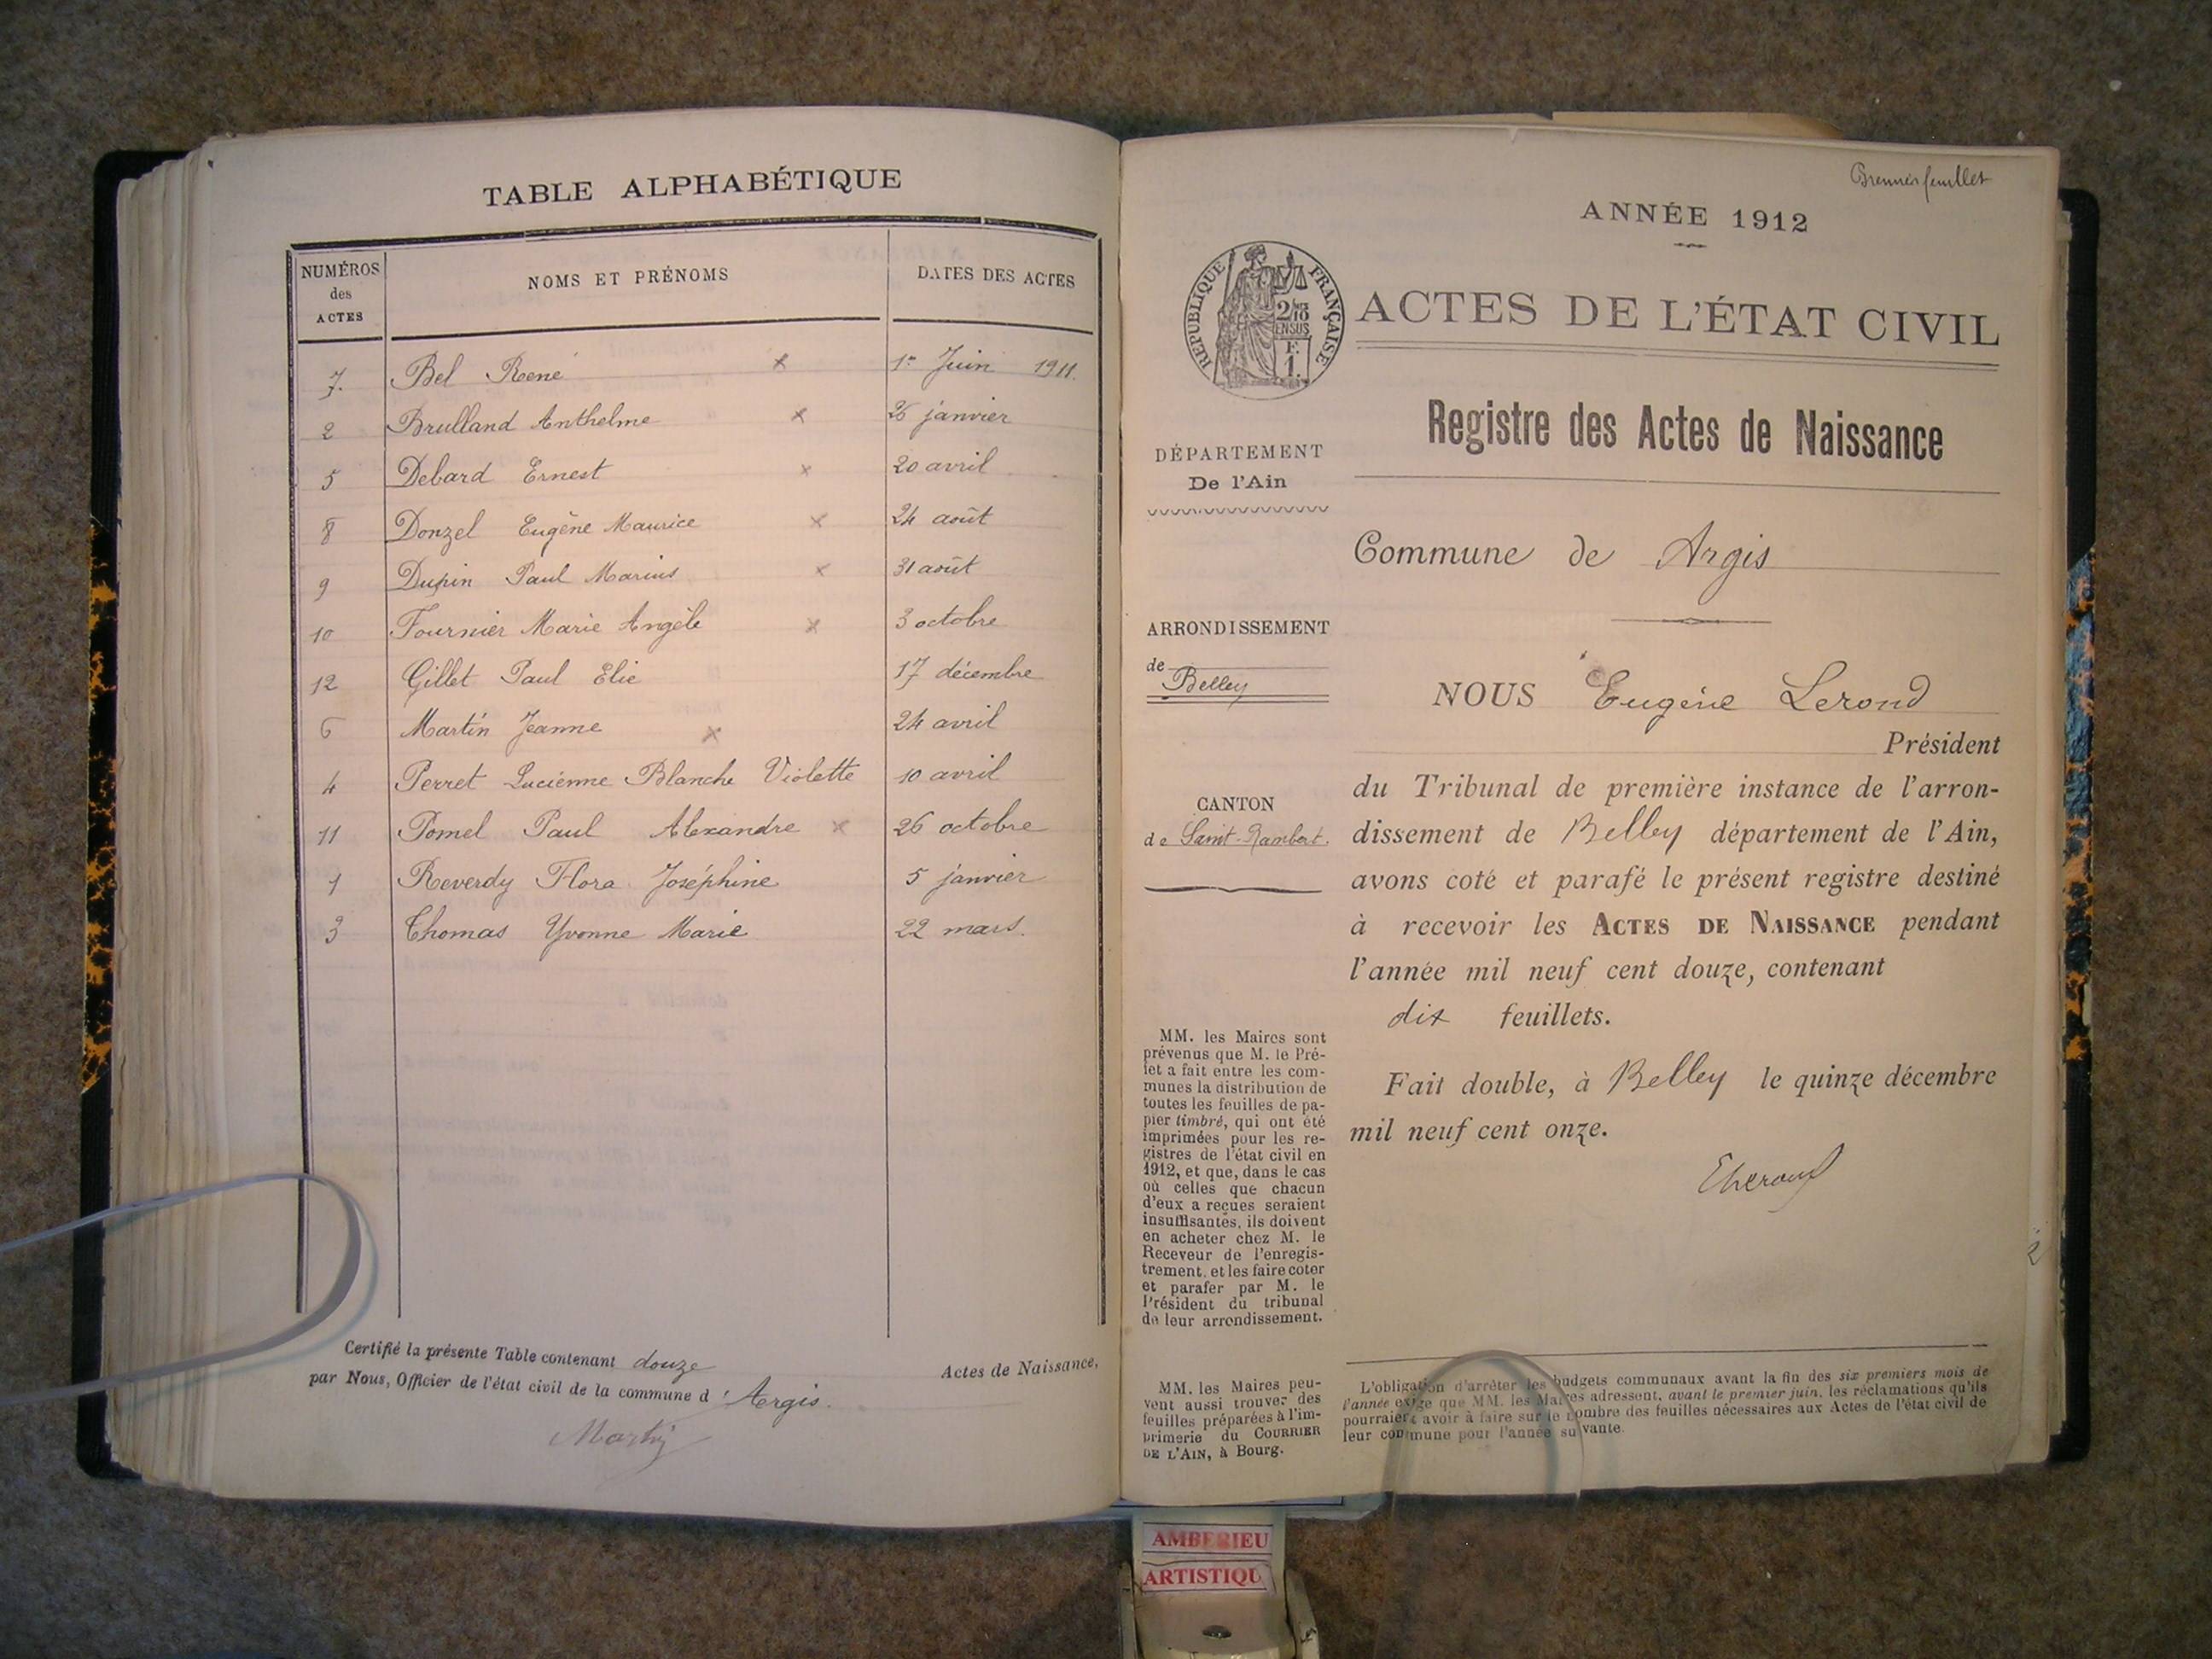 TABLE ALPHABÉTIQUE
NUMÉROS des ACTES
NOMS ET PRÉNOMS
DATES DES ACTES
7. Bel René x 1er Juin 1911.
2 Brulland Anthelme x 26 janvier
5 Debard Ernest x 20 avril
8 Donzel Eugène Maurice x 24 août
9 Dupin Paul Marius x 31 août
10 Fournier Marie Angèle x 3 octobre
12 Gillet Paul Elie 17 décembre
6 Martin Jeanne x 24 avril
4 Perret Lucienne Blanche Violette 10 avril
11 Pomel Paul Alexandre x 26 octobre
1 Reverdy Flora Joséphine 5 janvier
3 Thomas Yvonne Marie 22 mars.
Certifié la présente Table contenant douze Actes de Naissance,
par Nous, Officier de l'état civil de la commune d'Argis.
Premier feuillet
ANNÉE 1912
RÉPUBLIQUE FRANÇAISE
2/10 EN SUS
F. 1.
ACTES DE L'ÉTAT CIVIL
Registre des Actes de Naissance
DÉPARTEMENT
De l'Ain
Commune de Argis
ARRONDISSEMENT
de Belley
CANTON
de Saint-Rambert.
NOUS Eugène Lerond
Président
du Tribunal de première instance de l'arron-
dissement de Belley département de l'Ain,
avons coté et parafé le présent registre destiné
à recevoir les ACTES DE NAISSANCE pendant
l'année mil neuf cent douze, contenant
dix feuillets.
Fait double, à Belley le quinze décembre
mil neuf cent onze.
MM. les Maires sont
prévenus que M. le Pré-
fet a fait entre les com-
munes la distribution de
toutes les feuilles de pa-
pier timbré, qui ont été
imprimées pour les re-
gistres de l'état civil en
1912, et que, dans le cas
où celles que chacun
d'eux a reçues seraient
insuffisantes, ils doivent
en acheter chez M. le
Receveur de l'enregis-
trement, et les faire coter
et parafer par M. le
Président du tribunal
de leur arrondissement.
MM. les Maires peu-
vent aussi trouver des
feuilles préparées à l'im-
primerie du COURRIER
DE L'AIN, à Bourg.
L'obligation d'arrêter les budgets communaux avant la fin des six premiers mois de
l'année exige que MM. les Maires adressent, avant le premier juin, les réclamations qu'ils
pourraient avoir à faire sur le nombre des feuilles nécessaires aux Actes de l'état civil de
leur commune pour l'année suivante.
2
AMBERIEU
ARTISTIQU